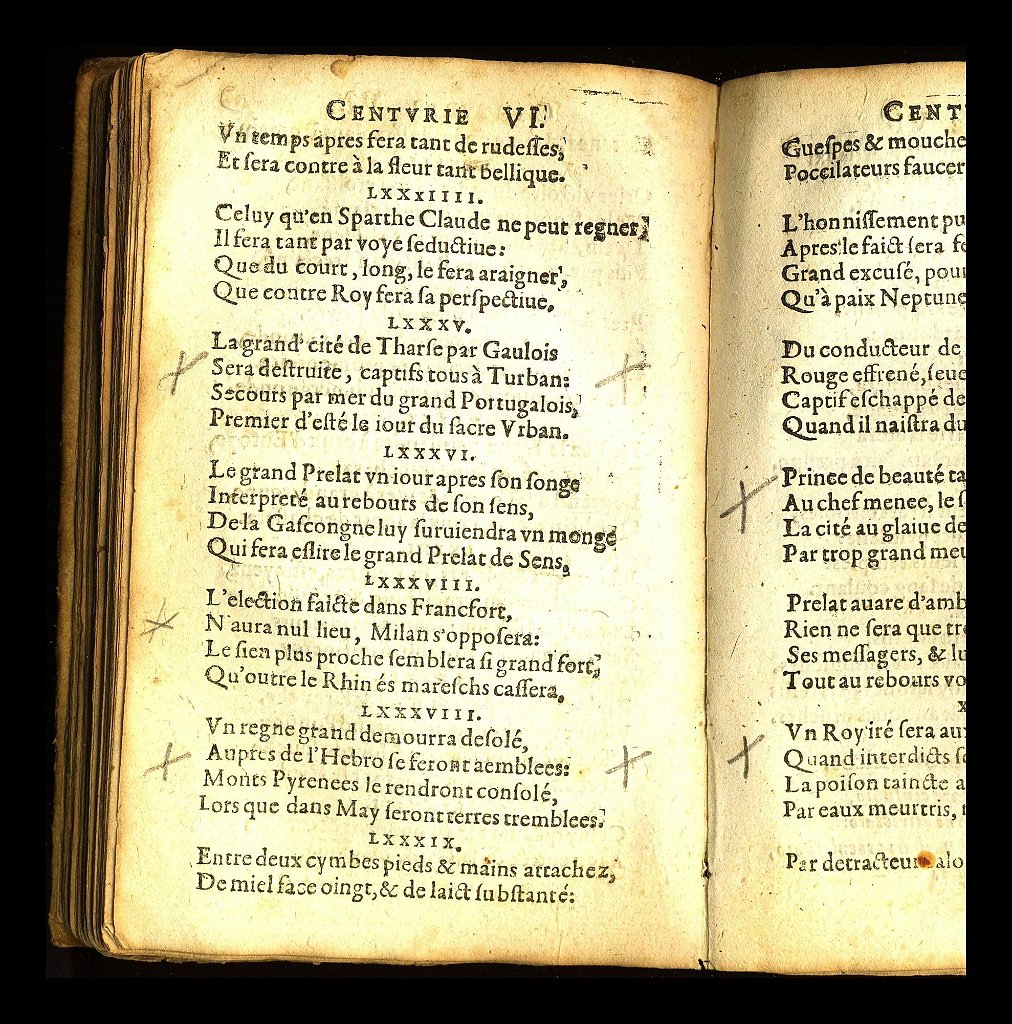 CENTVRIE VI.
Vn temps apres fera tant de rudeſſes,
Et ſera contre à la fleur tant bellique.
LXXXIIII.
Celuy qu'en Sparthe Claude ne peut regner,
Il fera tant par voye ſeductiue:
Que du court, long, le fera araigner,
Que contre Roy fera ſa perſpectiue.
LXXXV.
La grand' cité de Tharſe par Gaulois
Sera deſtruite, captifs tous à Turban:
Secours par mer du grand Portugalois,
Premier d'eſté le iour du ſacre Vrban.
LXXXVI.
Le grand Prelat vn iour apres ſon ſonge
Interpreté au rebours de ſon ſens,
De la Gaſcongne luy ſuruiendra vn monge
Qui fera eſlire le grand Prelat de Sens,
LXXXVIII.
L'election faicte dans Francfort,
N'aura nul lieu, Milan s'oppoſera:
Le ſien plus proche ſemblera ſi grand fort,
Qu'outre le Rhin és mareſchs caſſera,
LXXXVIII.
Vn regne grand demourra deſolé,
Aupres de l'Hebro ſe feront aemblees:
Monts Pyrenees le rendront conſolé,
Lors que dans May ſeront terres tremblees.
LXXXIX.
Entre deux cymbes pieds & mains attachez,
De miel face oingt, & de laict ſubſtanté:
CENT
Gueſpes & mouche
Poccilateurs faucer
L'honniſſement pu
Apres le faict ſera
Grand excuſé, pour
Qu'à paix Neptune
Du conducteur de
Rouge effrené,
Captif eſchappé de
Quand il naiſtra du
Prince de beauté ta
Au chef menee, le
La cité au glaiue de
Par trop grand meu
Prelat auare d'amb
Rien ne ſera que
Ses meſſagers, & lu
Tout au rebours vo
X
Vn Roy iré ſera aux
Quand interdicts
La poiſon taincte a
Par eaux meurtris,
Par detracteur alo